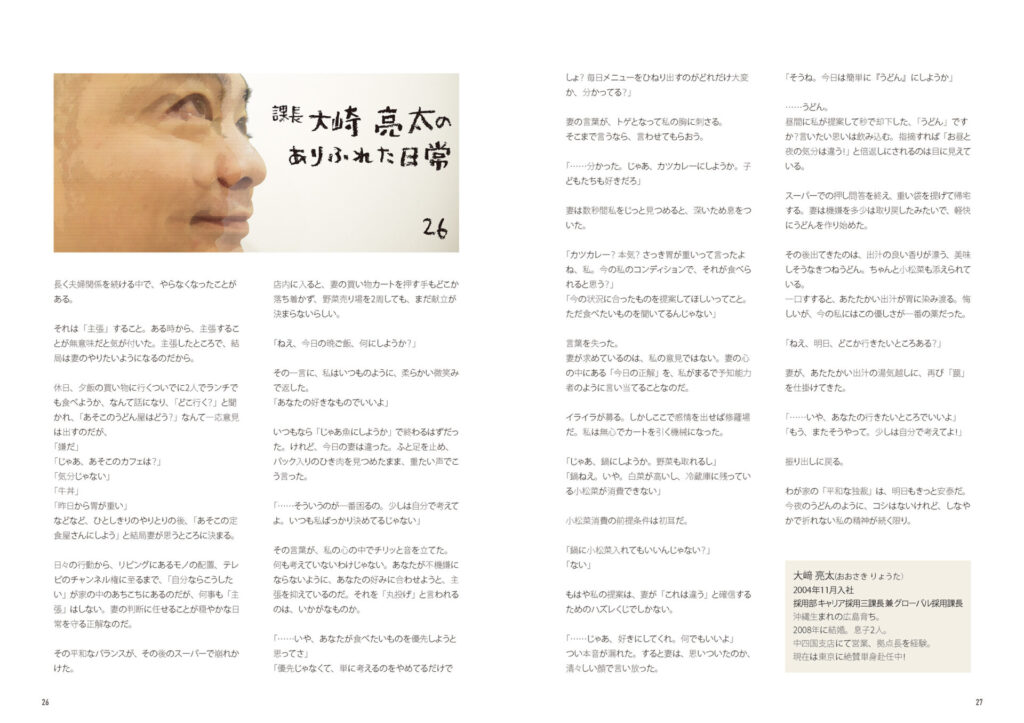 課長 大崎 亮太の
ありふれた日常
26
長く夫婦関係を続ける中で、やらなくなったことが
ある。
それは「主張」すること。ある時から、主張するこ
とが無意味だと気が付いた。主張したところで、結
局は妻のやりたいようになるのだから。
休日、夕飯の買い物に行くついでに2人でランチで
も食べようか、なんて話になり、「どこ行く?」と聞
かれ、「あそこのうどん屋はどう?」なんて一応意見
は出すのだが、
「嫌だ」
「じゃあ、あそこのカフェは?」
「気分じゃない」
「牛丼」
「昨日から胃が重い」
などなど、ひとしきりのやりとりの後、「あそこの定
食屋さんにしよう」と結局妻が思うところに決まる。
日々の行動から、リビングにあるモノの配置、テレ
ビのチャンネル権に至るまで、「自分ならこうした
い」が家の中のあちこちにあるのだが、何事も「主
張」はしない。妻の判断に任せることが穏やかな日
常を守る正解なのだ。
その平和なバランスが、その後のスーパーで崩れか
けた。
店内に入ると、妻の買い物カートを押す手もどこか
落ち着かず、野菜売り場を2周しても、まだ献立が
決まらないらしい。
「ねえ、今日の晩ご飯、何にしようか?」
その一言に、私はいつものように、柔らかい微笑み
で返した。
「あなたの好きなものでいいよ」
いつもなら「じゃあ魚にしようか」で終わるはずだっ
た。けれど、今日の妻は違った。ふと足を止め、
パック入りのひき肉を見つめたまま、重たい声でこ
う言った。
「……そういうのが一番困るの。少しは自分で考えて
よ。いつも私ばっかり決めてるじゃない」
その言葉が、私の心の中でチリッと音を立てた。
何も考えていないわけじゃない。あなたが不機嫌に
ならないように、あなたの好みに合わせようと、主
張を抑えているのだ。それを「丸投げ」と言われる
のは、いかがなものか。
「……いや、あなたが食べたいものを優先しようと
思ってさ」
「優先じゃなくて、単に考えるのをやめてるだけで
しょ? 毎日メニューをひねり出すのがどれだけ大変
か、分かってる?」
妻の言葉が、トゲとなって私の胸に刺さる。
そこまで言うなら、言わせてもらおう。
「……分かった。じゃあ、カツカレーにしようか。子
どもたちも好きだろ」
妻は数秒間私をじっと見つめると、深いため息をつ
いた。
「カツカレー? 本気? さっき胃が重いって言ったよ
ね、私。今の私のコンディションで、それが食べら
れると思う?」
「今の状況に合ったものを提案してほしいってこと。
ただ食べたいものを聞いてるんじゃない」
言葉を失った。
妻が求めているのは、私の意見ではない。妻の心
の中にある「今日の正解」を、私がまるで予知能力
者のように言い当てることなのだ。
イライラが募る。しかしここで感情を出せば修羅場
だ。私は無心でカートを引く機械になった。
「じゃあ、鍋にしようか。野菜も取れるし」
「鍋ねえ。いや。白菜が高いし、冷蔵庫に残ってい
る小松菜が消費できない」
小松菜消費の前提条件は初耳だ。
「鍋に小松菜入れてもいいんじゃない?」
「ない」
もはや私の提案は、妻が「これは違う」と確信する
ためのハズレくじでしかない。
「……じゃあ、好きにしてくれ。何でもいいよ」
つい本音が漏れた。すると妻は、思いついたのか、
清々しい顔で言い放った。
「そうね。今日は簡単に『うどん』にしようか」
……うどん。
昼間に私が提案して秒で却下した、「うどん」です
か?言いたい思いは飲み込む。指摘すれば「お昼と
夜の気分は違う!」と倍返しにされるのは目に見えて
いる。
スーパーでの押し問答を終え、重い袋を提げて帰宅
する。妻は機嫌を多少は取り戻したみたいで、軽快
にうどんを作り始めた。
その後出てきたのは、出汁の良い香りが漂う、美味
しそうなきつねうどん。ちゃんと小松菜も添えられて
いる。
一口すすると、あたたかい出汁が胃に染み渡る。悔
しいが、今の私にはこの優しさが一番の薬だった。
「ねえ、明日、どこか行きたいところある?」
妻が、あたたかい出汁の湯気越しに、再び「罠」
を仕掛けてきた。
「……いや、あなたの行きたいところでいいよ」
「もう、またそうやって。少しは自分で考えてよ!」
振り出しに戻る。
わが家の「平和な独裁」は、明日もきっと安泰だ。
今夜のうどんのように、コシはないけれど、しなや
かで折れない私の精神が続く限り。
大﨑 亮太(おおさき りょうた)
2004年11月入社
採用部 キャリア採用三課長 兼 グローバル採用課長
沖縄生まれの広島育ち。
2008年に結婚。息子2人。
中四国支店にて営業、拠点長を経験。
現在は東京に絶賛単身赴任中!
26
27